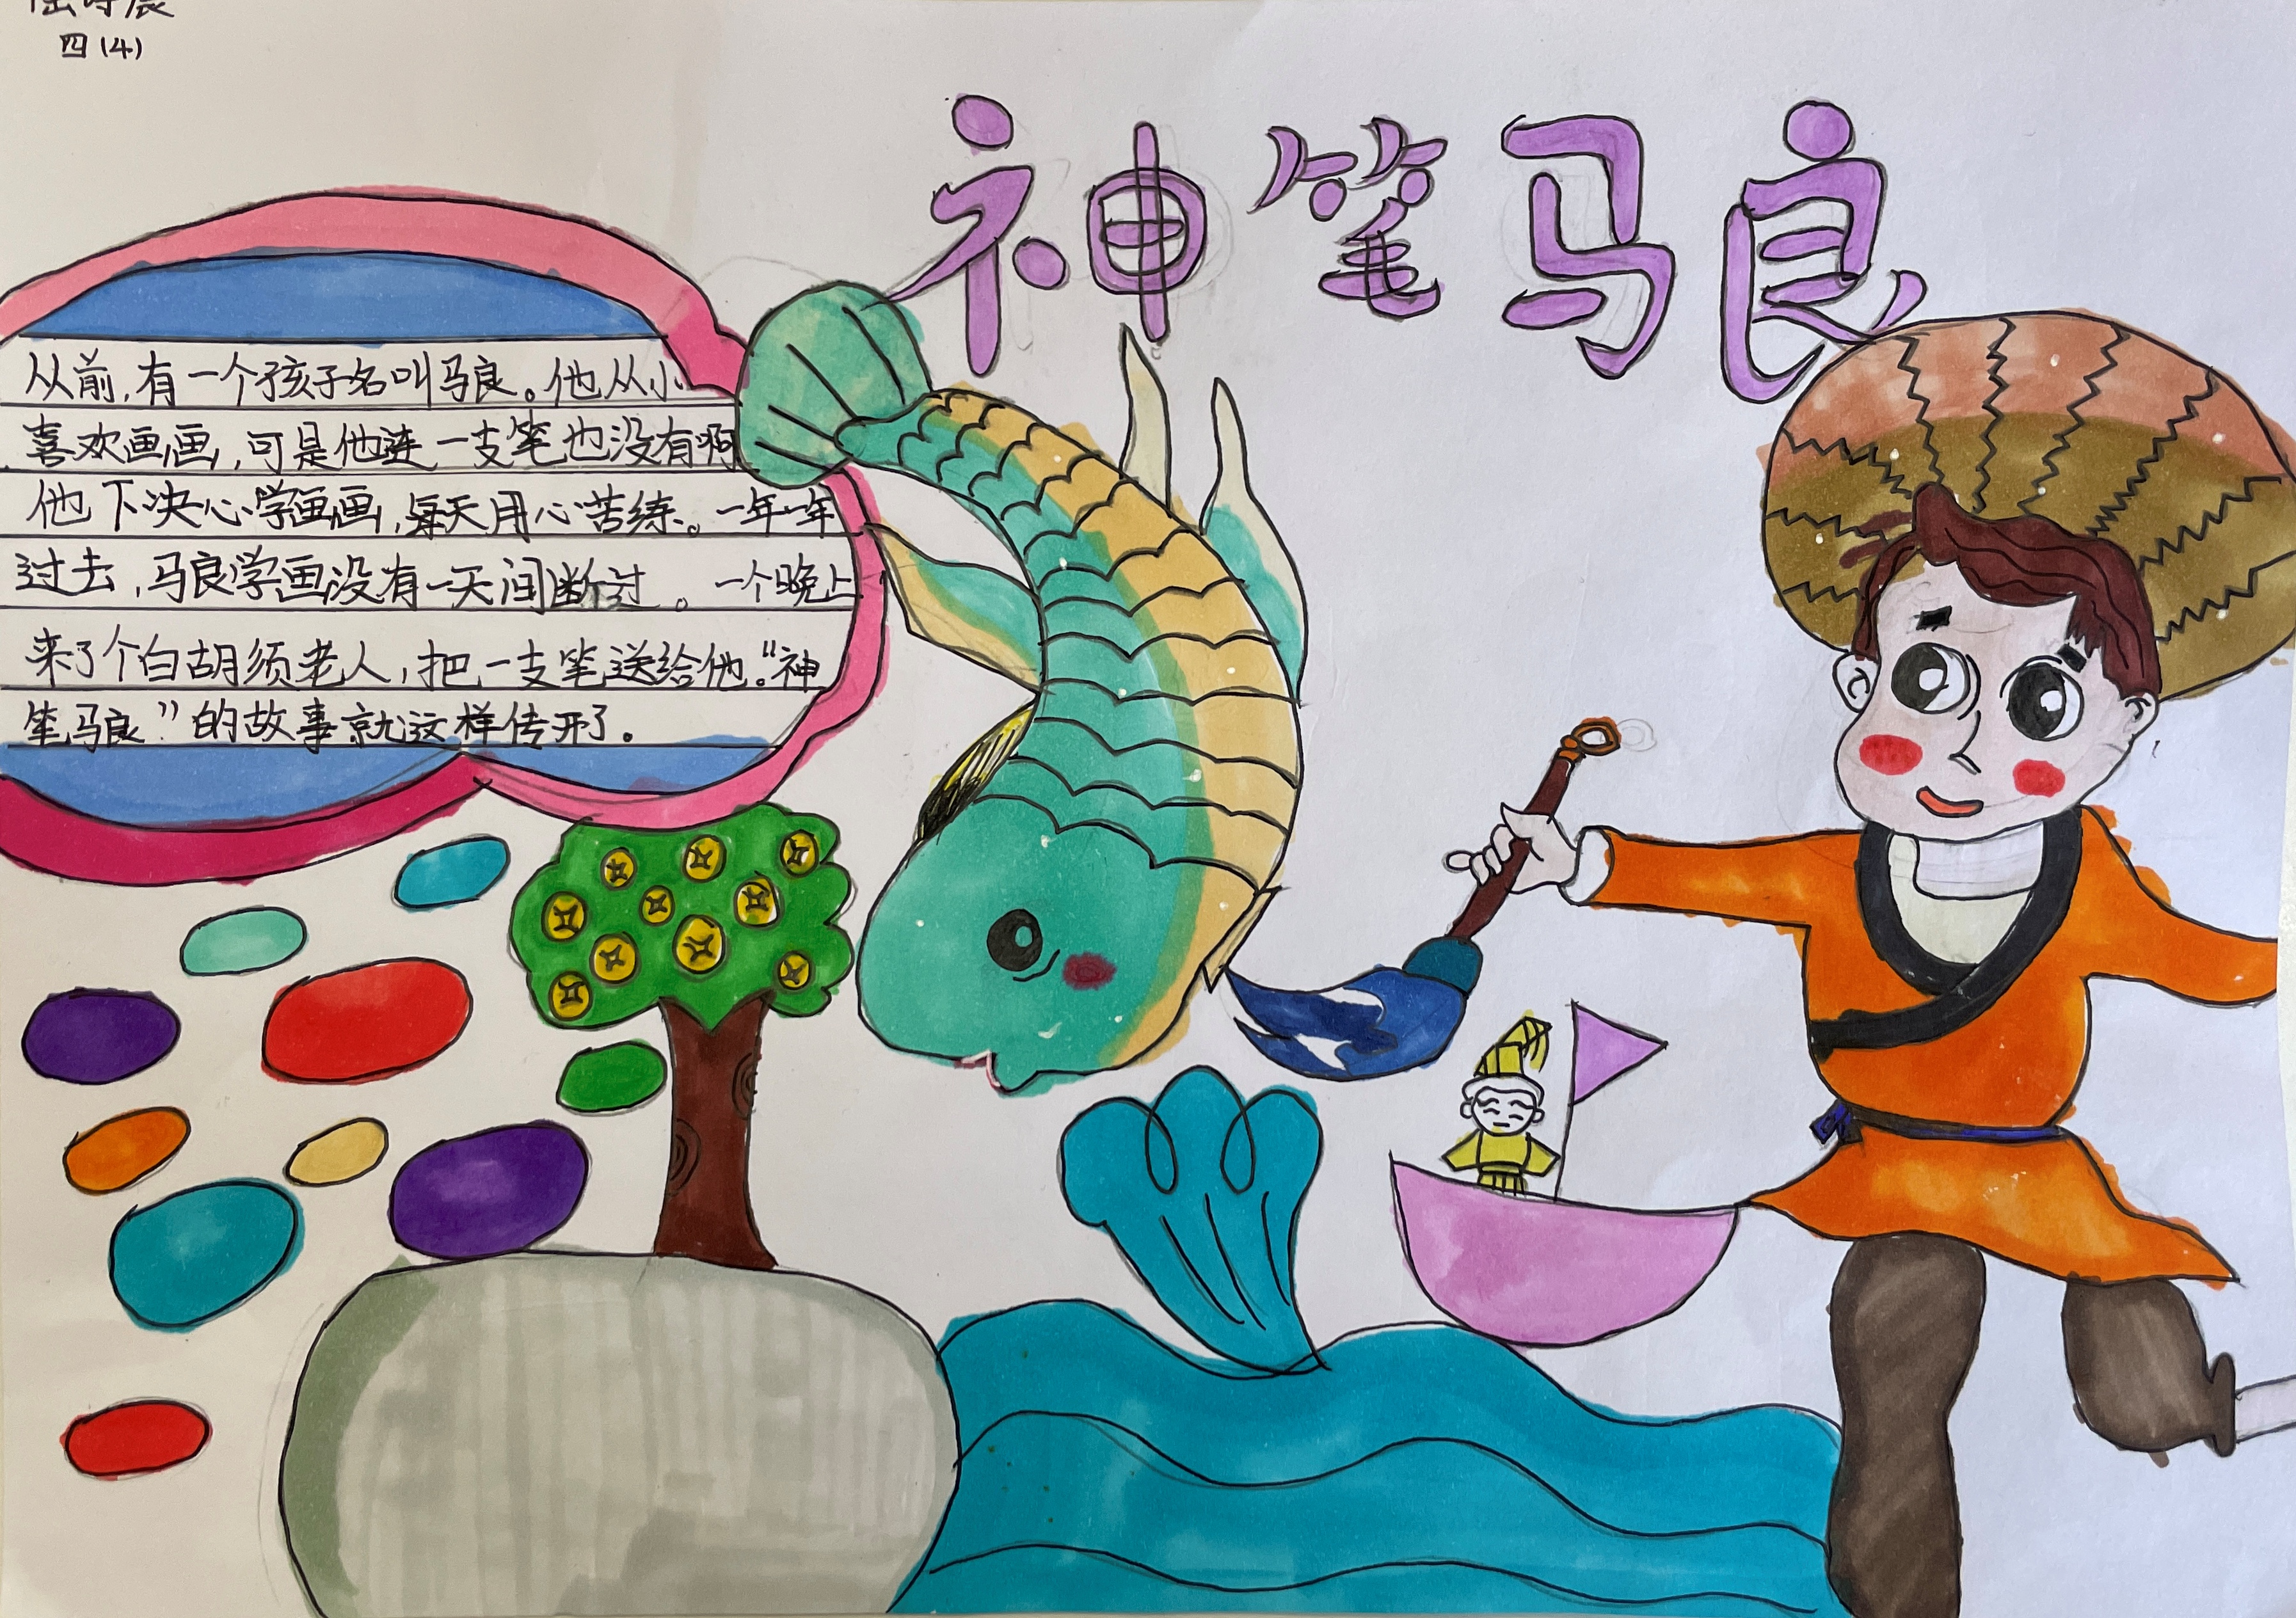 四(4)
神笔马良
从前,有一个孩子名叫马良。他从小
喜欢画画,可是他连一支笔也没有啊
他下决心学画画,每天用心苦练。一年一年
过去,马良学画没有一天间断过。一个晚上
来了个白胡须老人,把一支笔送给他。“神
笔马良”的故事就这样传开了。